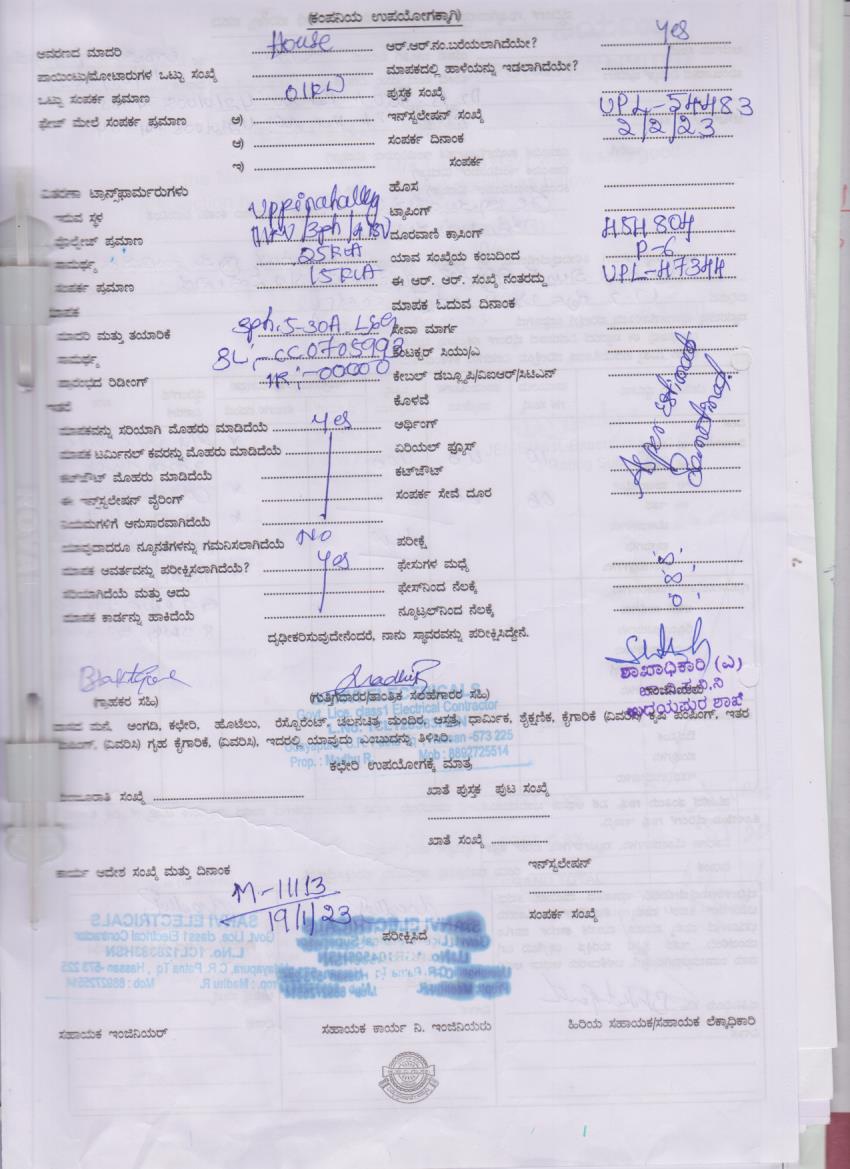 (ಕಂಪನಿಯ ಉಪಯೋಗಕ್ಕಾಗಿ)
ಆವರಣದ ಮಾದರಿ House ಆರ್.ಆರ್.ನಂ.ಬರೆಯಲಾಗಿದೆಯೇ? Yes
ಪಾಯಿಂಟು/ಮೋಟಾರುಗಳ ಒಟ್ಟು ಸಂಖ್ಯೆ ಮಾಪಕದಲ್ಲಿ ಹಾಳೆಯನ್ನು ಇಡಲಾಗಿದೆಯೇ?
ಒಟ್ಟು ಸಂಪರ್ಕ ಪ್ರಮಾಣ 01KW ಪುಸ್ತಕ ಸಂಖ್ಯೆ
ಫೇಜ್ ಮೇಲೆ ಸಂಪರ್ಕ ಪ್ರಮಾಣ ಅ) ಇನ್‌ಸ್ಟಲೇಷನ್ ಸಂಖ್ಯೆ UPL-54483
ಆ) ಸಂಪರ್ಕ ದಿನಾಂಕ 2/2/23
ಇ) ಸಂಪರ್ಕ
ವಿತರಣಾ ಟ್ರಾನ್ಸ್‌ಫಾರ್ಮರುಗಳು ಹೊಸ
ಇರುವ ಸ್ಥಳ Uppinahalley ಟ್ಯಾಪಿಂಗ್
ವೋಲ್ಟೇಜ್ ಪ್ರಮಾಣ 11KV/3ph/ ದೂರವಾಣಿ ಕ್ರಾಸಿಂಗ್ 454804
ಸಾಮರ್ಥ್ಯ 25KVA ಯಾವ ಸಂಖ್ಯೆಯ ಕಂಬದಿಂದ P-6
ಸಂಪರ್ಕ ಪ್ರಮಾಣ 15KVA ಈ ಆರ್. ಆರ್. ಸಂಖ್ಯೆ ನಂತರದ್ದು UPL-47344
ಮಾಪಕ ಮಾಪಕ ಓದುವ ದಿನಾಂಕ
ಮಾದರಿ ಮತ್ತು ತಯಾರಿಕೆ Sph. 5-30A. L&G ಸೇವಾ ಮಾರ್ಗ
ಸಾಮರ್ಥ್ಯ SL;-CC0705993 ಕಂಡಕ್ಟರ್ ಸಿಯು/ಎ
ಪ್ರಾರಂಭದ ರಿಡೀಂಗ್ IR;-00000 ಕೇಬಲ್ ಡಬ್ಲ್ಯೂಪಿ/ವಿಐಆರ್/ಸಿಟಿಎನ್
ಇತರೆ ಕೊಳವೆ
ಮಾಪಕವನ್ನು ಸರಿಯಾಗಿ ಮೊಹರು ಮಾಡಿದೆಯೆ Yes ಅರ್ಥಿಂಗ್ As per Estimate
ಮಾಪಕ ಟರ್ಮಿನಲ್ ಕವರನ್ನು ಮೊಹರು ಮಾಡಿದೆಯೆ ಏರಿಯಲ್ ಫ್ಯೂಸ್
ಕಟ್‌ಔಟ್ ಮೊಹರು ಮಾಡಿದೆಯೆ ಕಟ್‌ಔಟ್
ಈ ಇನ್‌ಸ್ಟಲೇಷನ್ ವೈರಿಂಗ್ ಸಂಪರ್ಕ ಸೇವೆ ದೂರ
ನಿಯಮಗಳಿಗೆ ಅನುಸಾರವಾಗಿದೆಯೆ
ಯಾವುದಾದರೂ ನ್ಯೂನತೆಗಳನ್ನು ಗಮನಿಸಲಾಗಿದೆಯೆ No ಪರೀಕ್ಷೆ
ಮಾಪಕ ಆವರ್ತವನ್ನು ಪರೀಕ್ಷಿಸಲಾಗಿದೆಯೆ? Yes ಫೇಸುಗಳ ಮಧ್ಯೆ '∞'
ಸರಿಯಾಗಿದೆಯೆ ಮತ್ತು ಅದು ಫೇಸ್‌ನಿಂದ ನೆಲಕ್ಕೆ '∞'
ಮಾಪಕ ಕಾರ್ಡನ್ನು ಹಾಕಿದೆಯೆ ನ್ಯೂಟ್ರಲ್‌ನಿಂದ ನೆಲಕ್ಕೆ '0'
ದೃಢೀಕರಿಸುವುದೇನೆಂದರೆ, ನಾನು ಸ್ಥಾವರವನ್ನು ಪರೀಕ್ಷಿಸಿದ್ದೇನೆ.
ಶಾಖಾಧಿಕಾರಿ (ಎ)
(ಗ್ರಾಹಕರ ಸಹಿ) (ಗುತ್ತಿಗೆದಾರರ/ತಾಂತ್ರಿಕ ಸಲಹೆಗಾರರ ಸಹಿ)
ಉದಯಪುರ ಶಾಖೆ
Govt. Lice. class1 Electrical Contractor
ವಾಸದ ಮನೆ, ಅಂಗಡಿ, ಕಛೇರಿ, ಹೊಟೆಲು, ರೆಸ್ಟೋರೆಂಟ್, ಚಲನಚಿತ್ರ ಮಂದಿರ, ಆಸ್ಪತ್ರೆ, ಧಾರ್ಮಿಕ, ಶೈಕ್ಷಣಿಕ, ಕೈಗಾರಿಕೆ (ವಿವರಿಸಿ) ಕೃಷಿ ಪಂಪಿಂಗ್, ಇತರ
ಪಂಪಿಂಗ್, (ವಿವರಿಸಿ) ಗೃಹ ಕೈಗಾರಿಕೆ, (ವಿವರಿಸಿ), ಇದರಲ್ಲಿ ಯಾವುದು ಎಂಬುದನ್ನು ತಿಳಿಸಿರಿ.
Prop. : Madhu R. Mob : 8892725514
ಕಛೇರಿ ಉಪಯೋಗಕ್ಕೆ ಮಾತ್ರ
ಸಂಖ್ಯೆ ಖಾತೆ ಪುಸ್ತಕ ಪುಟ ಸಂಖ್ಯೆ
ಖಾತೆ ಸಂಖ್ಯೆ
ಕಾರ್ಯ ಆದೇಶ ಸಂಖ್ಯೆ ಮತ್ತು ದಿನಾಂಕ ಇನ್‌ಸ್ಟಲೇಷನ್
M-11113
19/1/23 ಸಂಪರ್ಕ ಸಂಖ್ಯೆ
SANVI ELECTRICALS
Govt. Lice. class1 Electrical Contractor
ಪರೀಕ್ಷಿಸಿದೆ
L.No. 1CL12833HSN
Udayapura, C.R. Patna Tq , Hassan -573 225
Prop. : Madhu R. Mob : 8892725514
ಸಹಾಯಕ ಇಂಜಿನಿಯರ್ ಸಹಾಯಕ ಕಾರ್ಯ ನಿ. ಇಂಜಿನಿಯರು ಹಿರಿಯ ಸಹಾಯಕ/ಸಹಾಯಕ ಲೆಕ್ಕಾಧಿಕಾರಿ